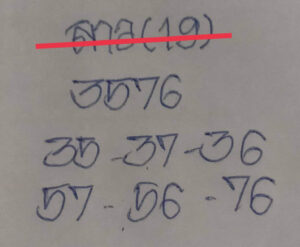 ลาว(19)
3576
35-37-36
57-56-76